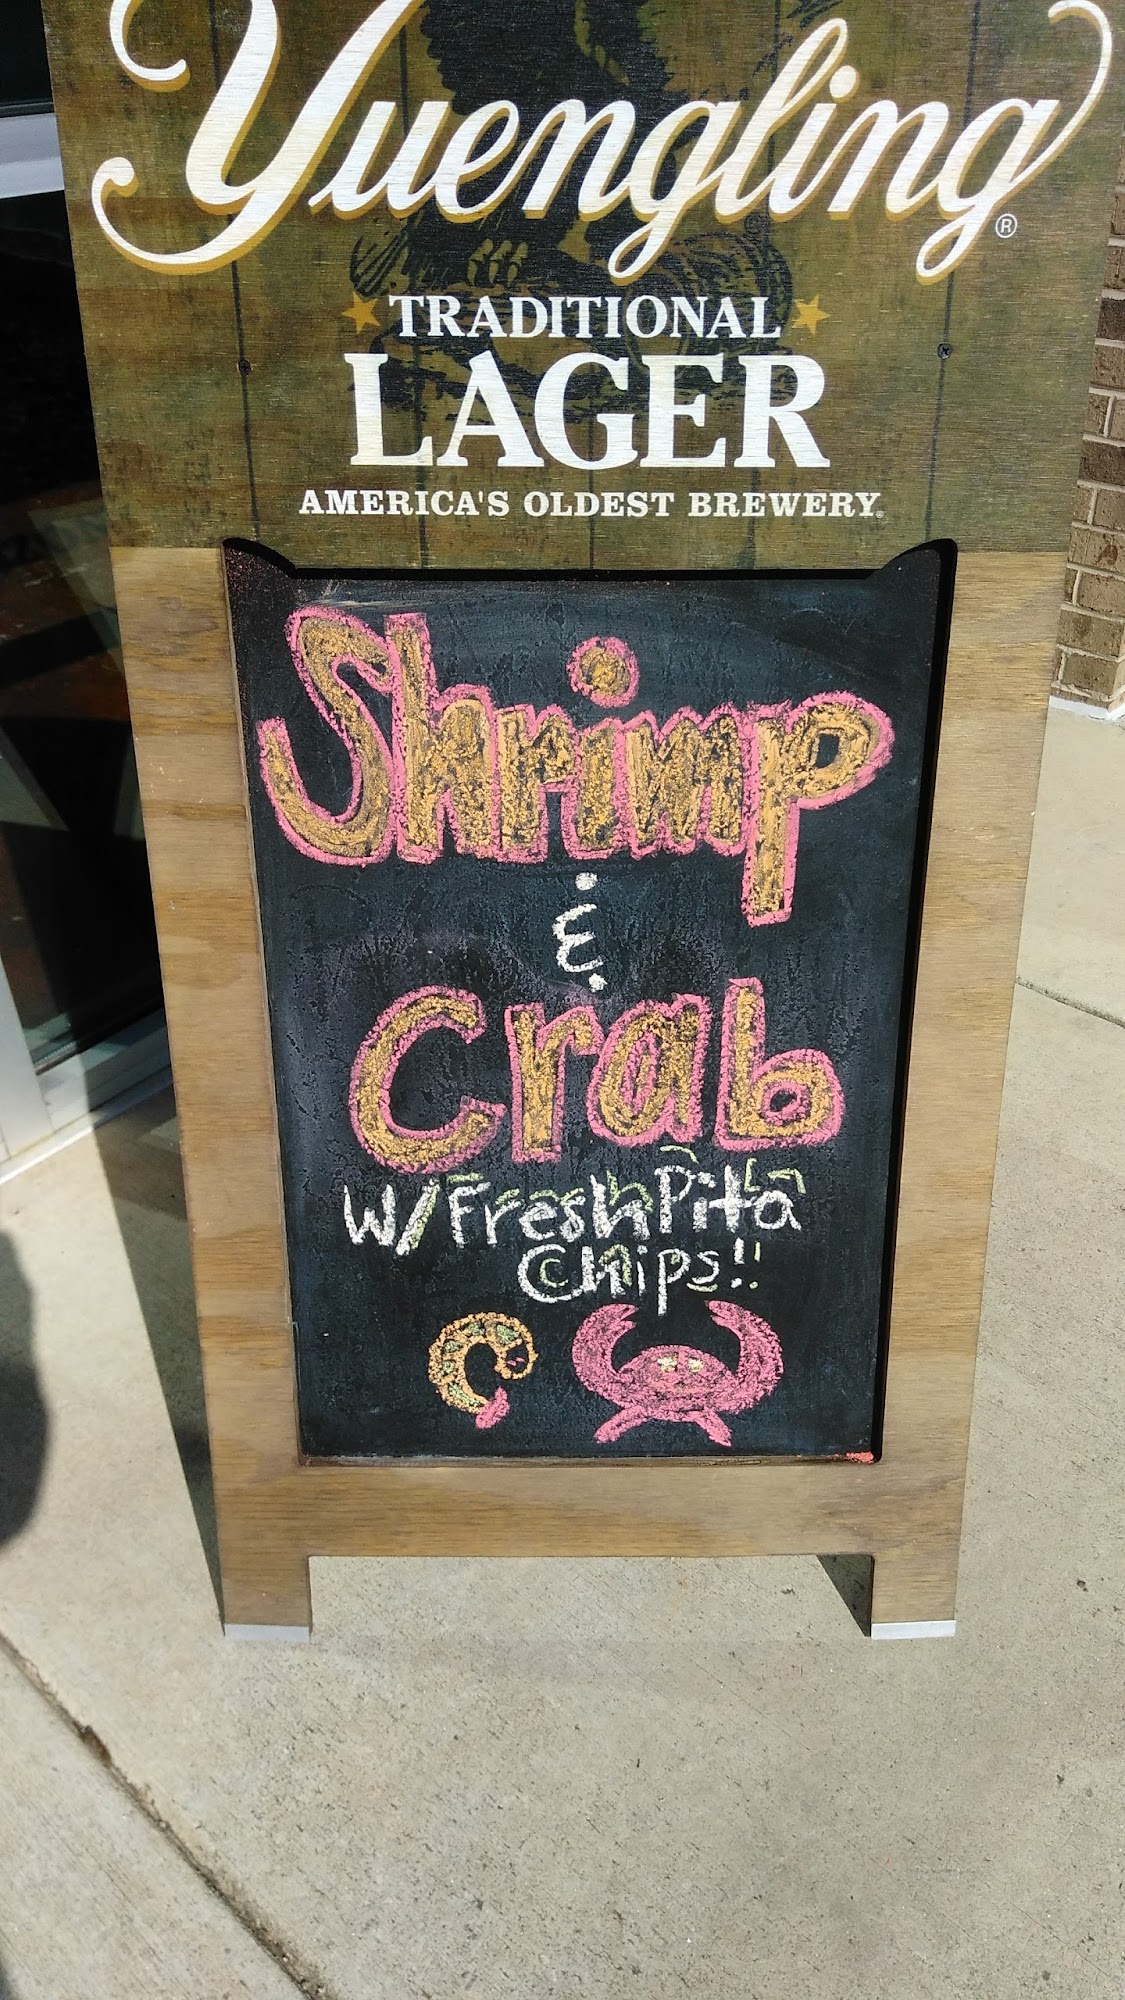 Yuengling®
TRADITIONAL
LAGER
AMERICA'S OLDEST BREWERY®
Shrimp
&
Crab
W/ Fresh Pita
Chips!!